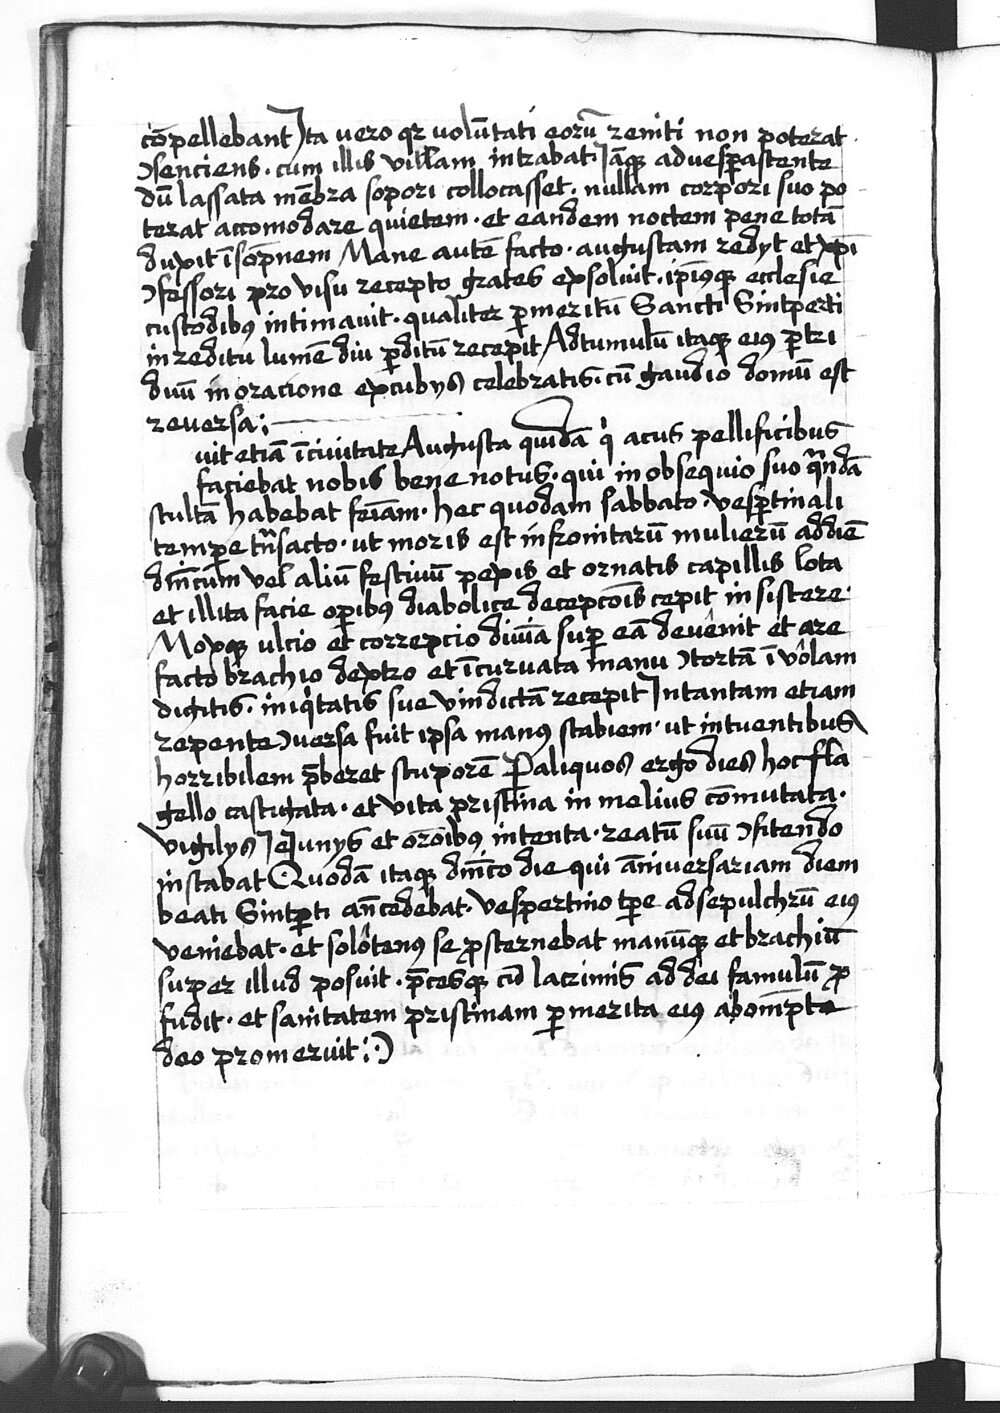 cōpellebant Ita vero qz volūtati eorū reniti non poterat ·
ↄsenciens · cum illis villam intrabat Iāqꝫ advesꝑastente
dū lassata mēbra sopori collocasset · nullam corpori suo po
terat accomodare quietem · et eandem noctem pene totā
duxit īsōpnem Mane autē facto · augustam redyt et xp̄i
ↄfessori pro visu recepto grates exsolvit · ip̄iꝰqꝫ ecclesie
custodibꝰ intimavit · qualiter ꝑ meritū Sancti Sintperti
in reditu lumē diu ꝑditū recepit Ad tumulū itaqꝫ eiꝰ ꝑ tri
duū in oracione excubÿs celebratis · cū gaudio domū est
reversa ;
uit etiā ī civitate Augusta quidā q̇ acus pellificibus
faciebat nobis bene notus · qui in obsequio suo q̄ndā
stultā habebat feīam · hec quodam sabbato · vesꝑtinali
temꝑe tn̄sacto · ut moris est infronitarū mulierū ad diē
dn̄icum vel aliū festivū pexis et ornatis capillis lota
et illita facie oꝑibꝰ diabolice decepcōis cepit insistere ·
Moxqꝫ ulcio et correpcio divīa suꝑ eā devēnit et are
facto brachio dextro et īcurvata manu ↄtortā ī volam
digitis · iniq̇tatis sue vindictā recepit In tantam etiam
repente ↄversa fuit ipsa manꝰ scabiem · ut intuentibus
horribilem p̄beret stuporē Ꝑ aliquos ergo dies hoc fla
gello castigata · et vita pristina in melius cōmutata ·
vigilÿs Iejunÿs et orōibꝰ intenta · reatū suū ↄfitendo
instabat Quodā itaqꝫ dn̄ico die qui āniversariam diem
beati Sintꝑti an̄cedebat · vespertino tꝑe ad sepulchrū eiꝰ
veniebat · et solotenꝰ se ꝓsternebat manūqꝫ et brachiū
surper illud posuit · p̄cesqꝫ cū lacrimis ad dei famulū ꝓ
fudit · et sanitatem pristinam ꝑ merita eiꝰ ab om̄pte
deo promeruit ;